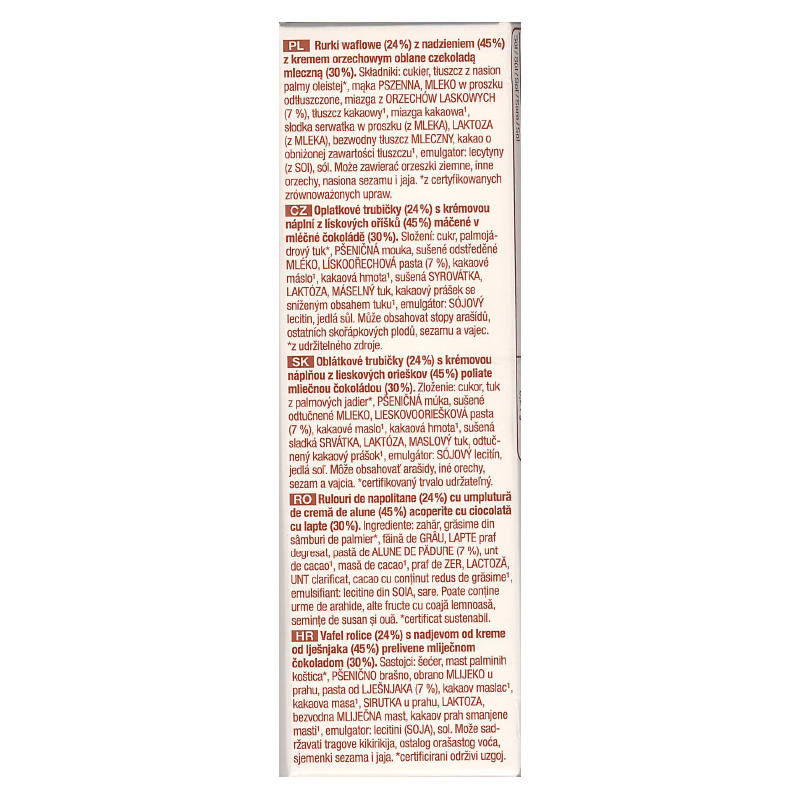 PL Rurki waflowe (24%) z nadzieniem (45%)
z kremem orzechowym oblane czekoladą
mleczną (30%). Składniki: cukier, tłuszcz z nasion
palmy oleistej*, mąka PSZENNA, MLEKO w proszku
odtłuszczone, miazga z ORZECHÓW LASKOWYCH
(7 %), tłuszcz kakaowy¹, miazga kakaowa¹,
słodka serwatka w proszku (z MLEKA), LAKTOZA
(z MLEKA), bezwodny tłuszcz MLECZNY, kakao o
obniżonej zawartości tłuszczu¹, emulgator: lecytyny
(z SOI), sól. Może zawierać orzeszki ziemne, inne
orzechy, nasiona sezamu i jaja. *z certyfikowanych
zrównoważonych upraw.
CZ Oplatkové trubičky (24%) s krémovou
náplní z lískových oříšků (45%) máčené v
mléčné čokoládě (30%). Složení: cukr, palmojá-
drový tuk*, PŠENIČNÁ mouka, sušené odstředěné
MLÉKO, LÍSKOOŘECHOVÁ pasta (7 %), kakaové
máslo¹, kakaová hmota¹, sušená SYROVÁTKA,
LAKTÓZA, MÁSELNÝ tuk, kakaový prášek se
sníženým obsahem tuku¹, emulgátor: SÓJOVÝ
lecitin, jedlá sůl. Může obsahovat stopy arašídů,
ostatních skořápkových plodů, sezamu a vajec.
*z udržitelného zdroje.
SK Oblátkové trubičky (24%) s krémovou
náplňou z lieskových orieškov (45%) poliate
mliečnou čokoládou (30%). Zloženie: cukor, tuk
z palmových jadier*, PŠENIČNÁ múka, sušené
odtučnené MLIEKO, LIESKOVOORIEŠKOVÁ pasta
(7 %), kakaové maslo¹, kakaová hmota¹, sušená
sladká SRVÁTKA, LAKTÓZA, MASLOVÝ tuk, odtuč-
nený kakaový prášok¹, emulgátor: SÓJOVÝ lecitín,
jedlá soľ. Môže obsahovať arašidy, iné orechy,
sezam a vajcia. *certifikovaný trvalo udržateľný.
RO Rulouri de napolitane (24%) cu umplutură
de cremă de alune (45%) acoperite cu ciocolată
cu lapte (30%). Ingrediente: zahăr, grăsime din
sâmburi de palmier*, făină de GRÂU, LAPTE praf
degresat, pastă de ALUNE DE PĂDURE (7 %), unt
de cacao¹, masă de cacao¹, praf de ZER, LACTOZĂ,
UNT clarificat, cacao cu conținut redus de grăsime¹,
emulsifiant: lecitine din SOIA, sare. Poate conține
urme de arahide, alte fructe cu coajă lemnoasă,
semințe de susan și ouă. *certificat sustenabil.
HR Vafel rolice (24%) s nadjevom od kreme
od lješnjaka (45%) prelivene mliječnom
čokoladom (30%). Sastojci: šećer, mast palminih
koštica*, PŠENIČNO brašno, obrano MLIJEKO u
prahu, pasta od LJEŠNJAKA (7 %), kakaov maslac¹,
kakaova masa¹, SIRUTKA u prahu, LAKTOZA,
bezvodna MLIJEČNA mast, kakaov prah smanjene
masti¹, emulgator: lecitini (SOJA), sol. Može sad-
ržavati tragove kikirikija, ostalog orašastog voća,
sjemenki sezama i jaja. *certificirani održivi uzgoj.